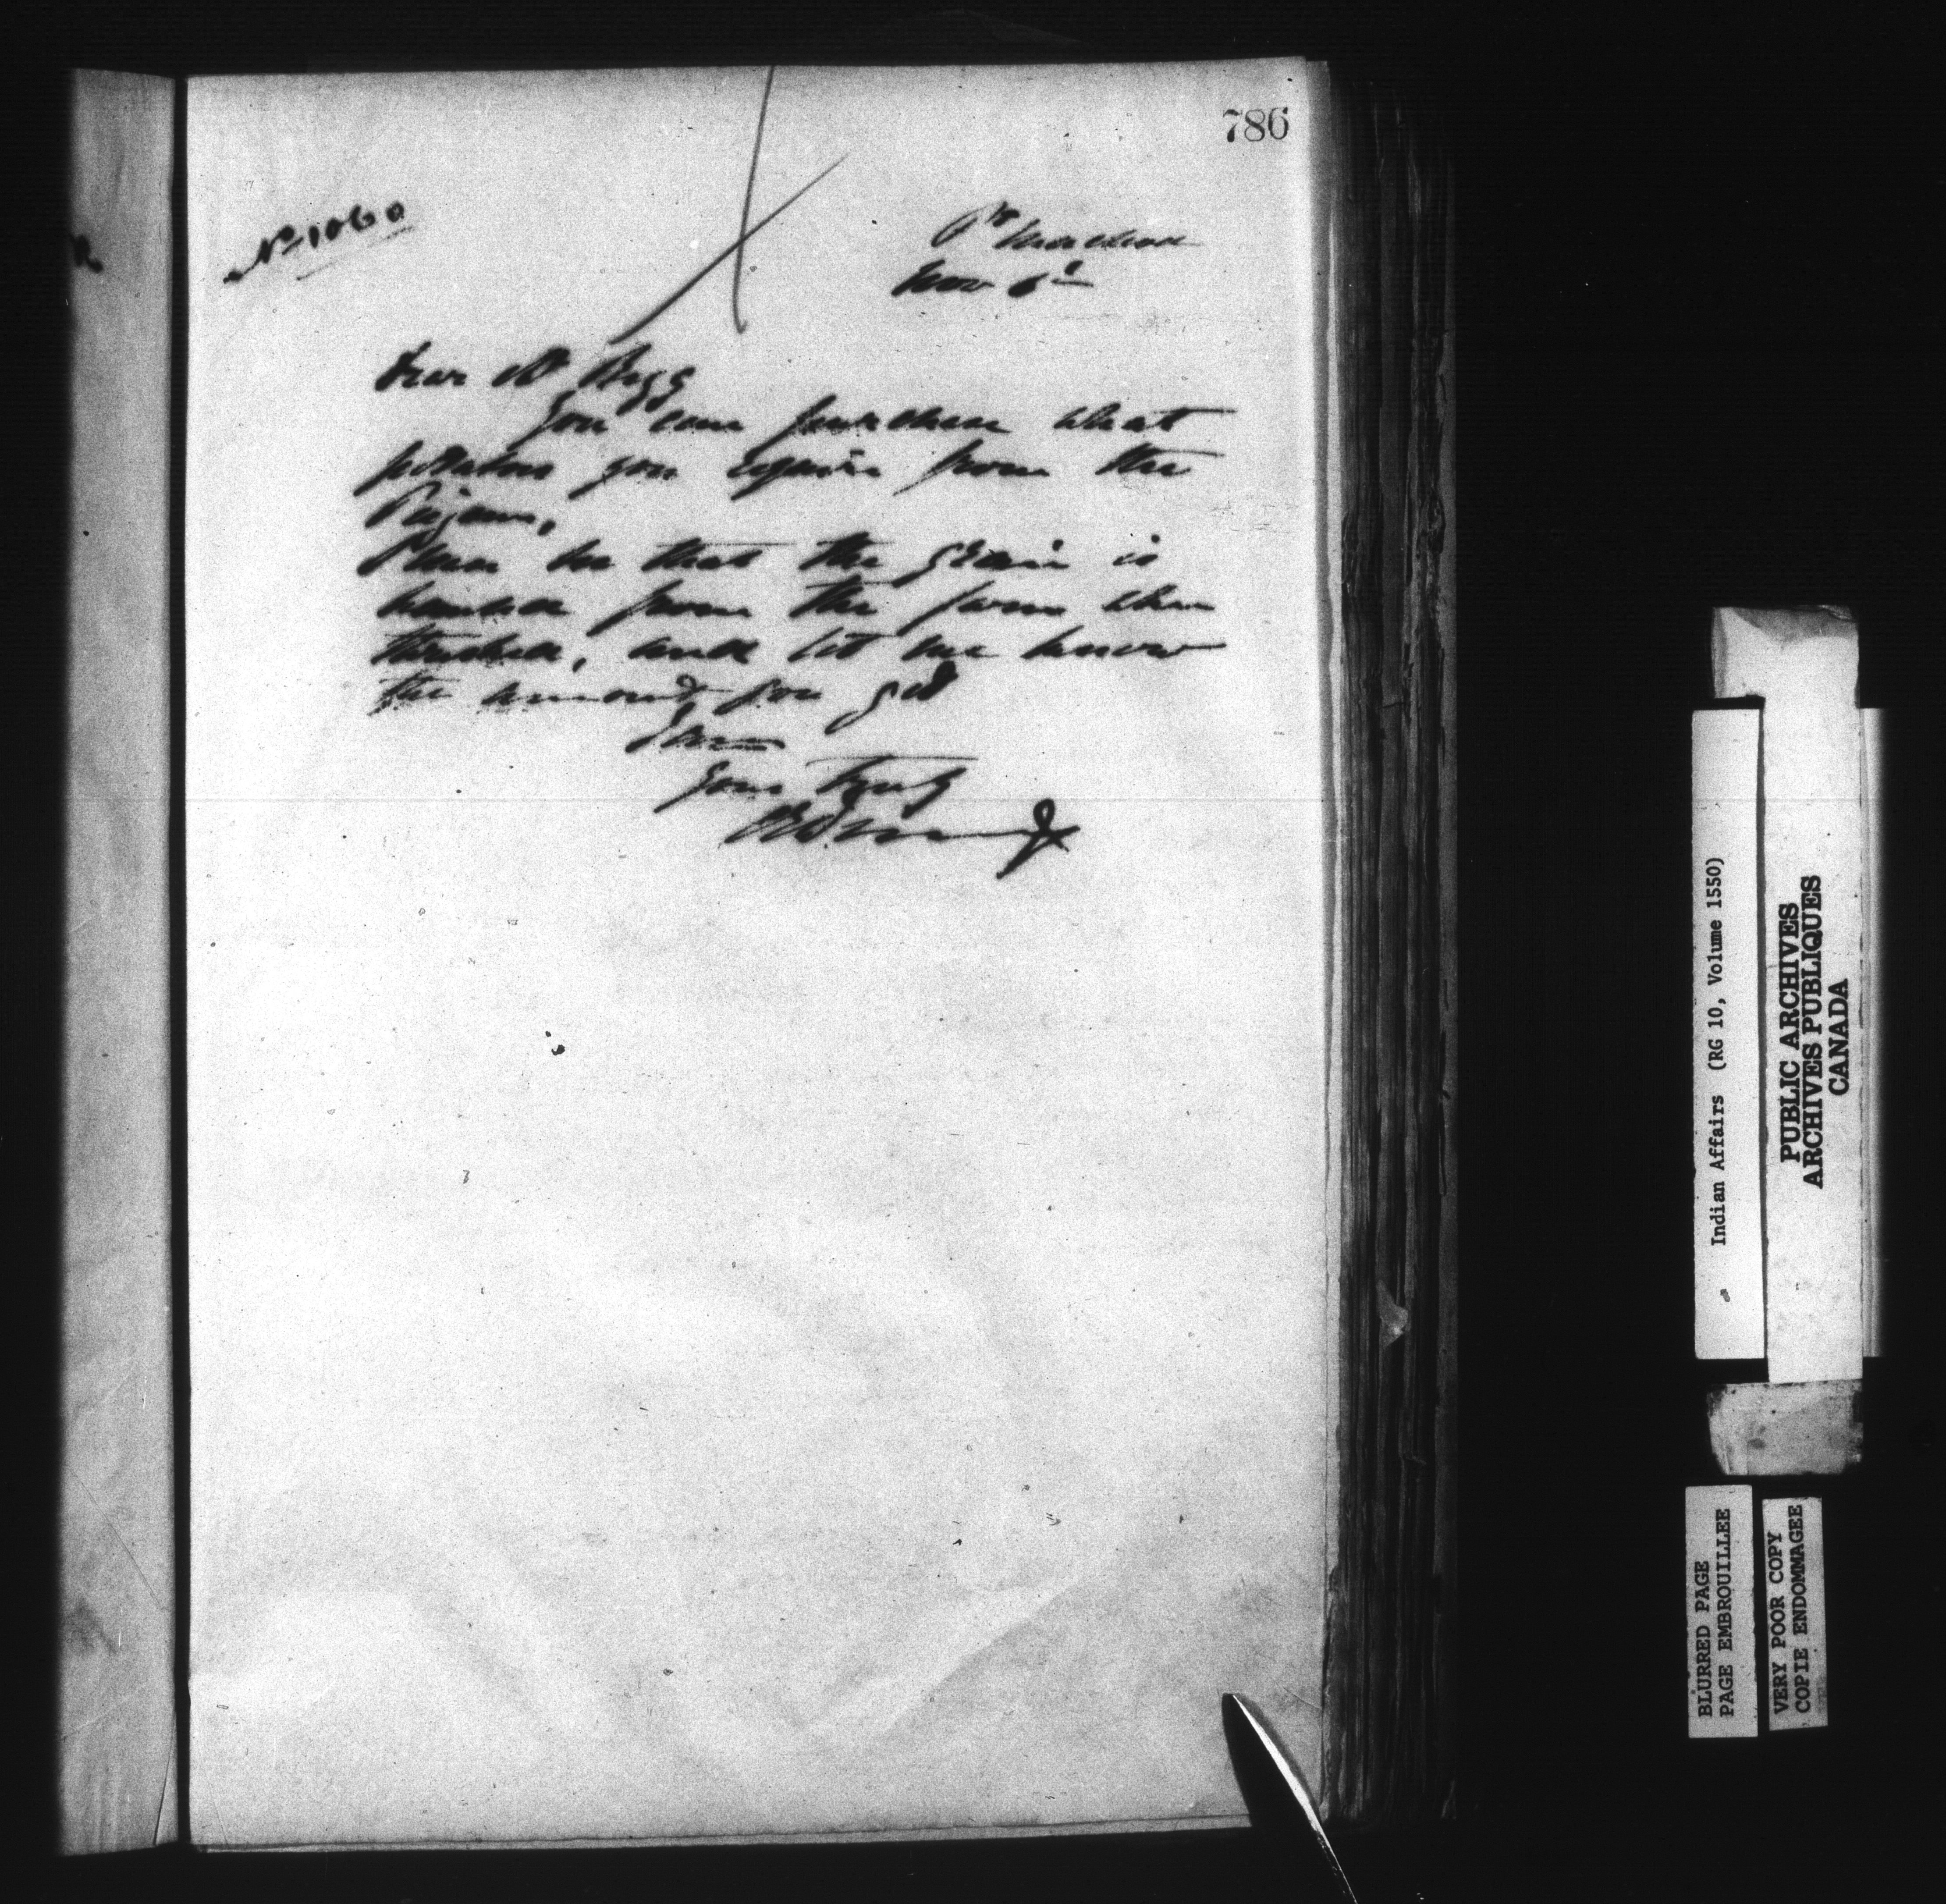 786
No 1060
Ft Macleod
Nov 6th
Dear Mr Begg
You can purchase what
potatoes you require from the
Peigans,
Please see that the grain is
hauled from the farm when
threshed, and let me know
the amount you get
I am
Yours Truly
Indian Affairs (RG 10, Volume 1550)
PUBLIC ARCHIVES
ARCHIVES PUBLIQUES
CANADA
BLURRED PAGE
PAGE EMBROUILLEE
VERY POOR COPY
COPIE ENDOMMAGEE